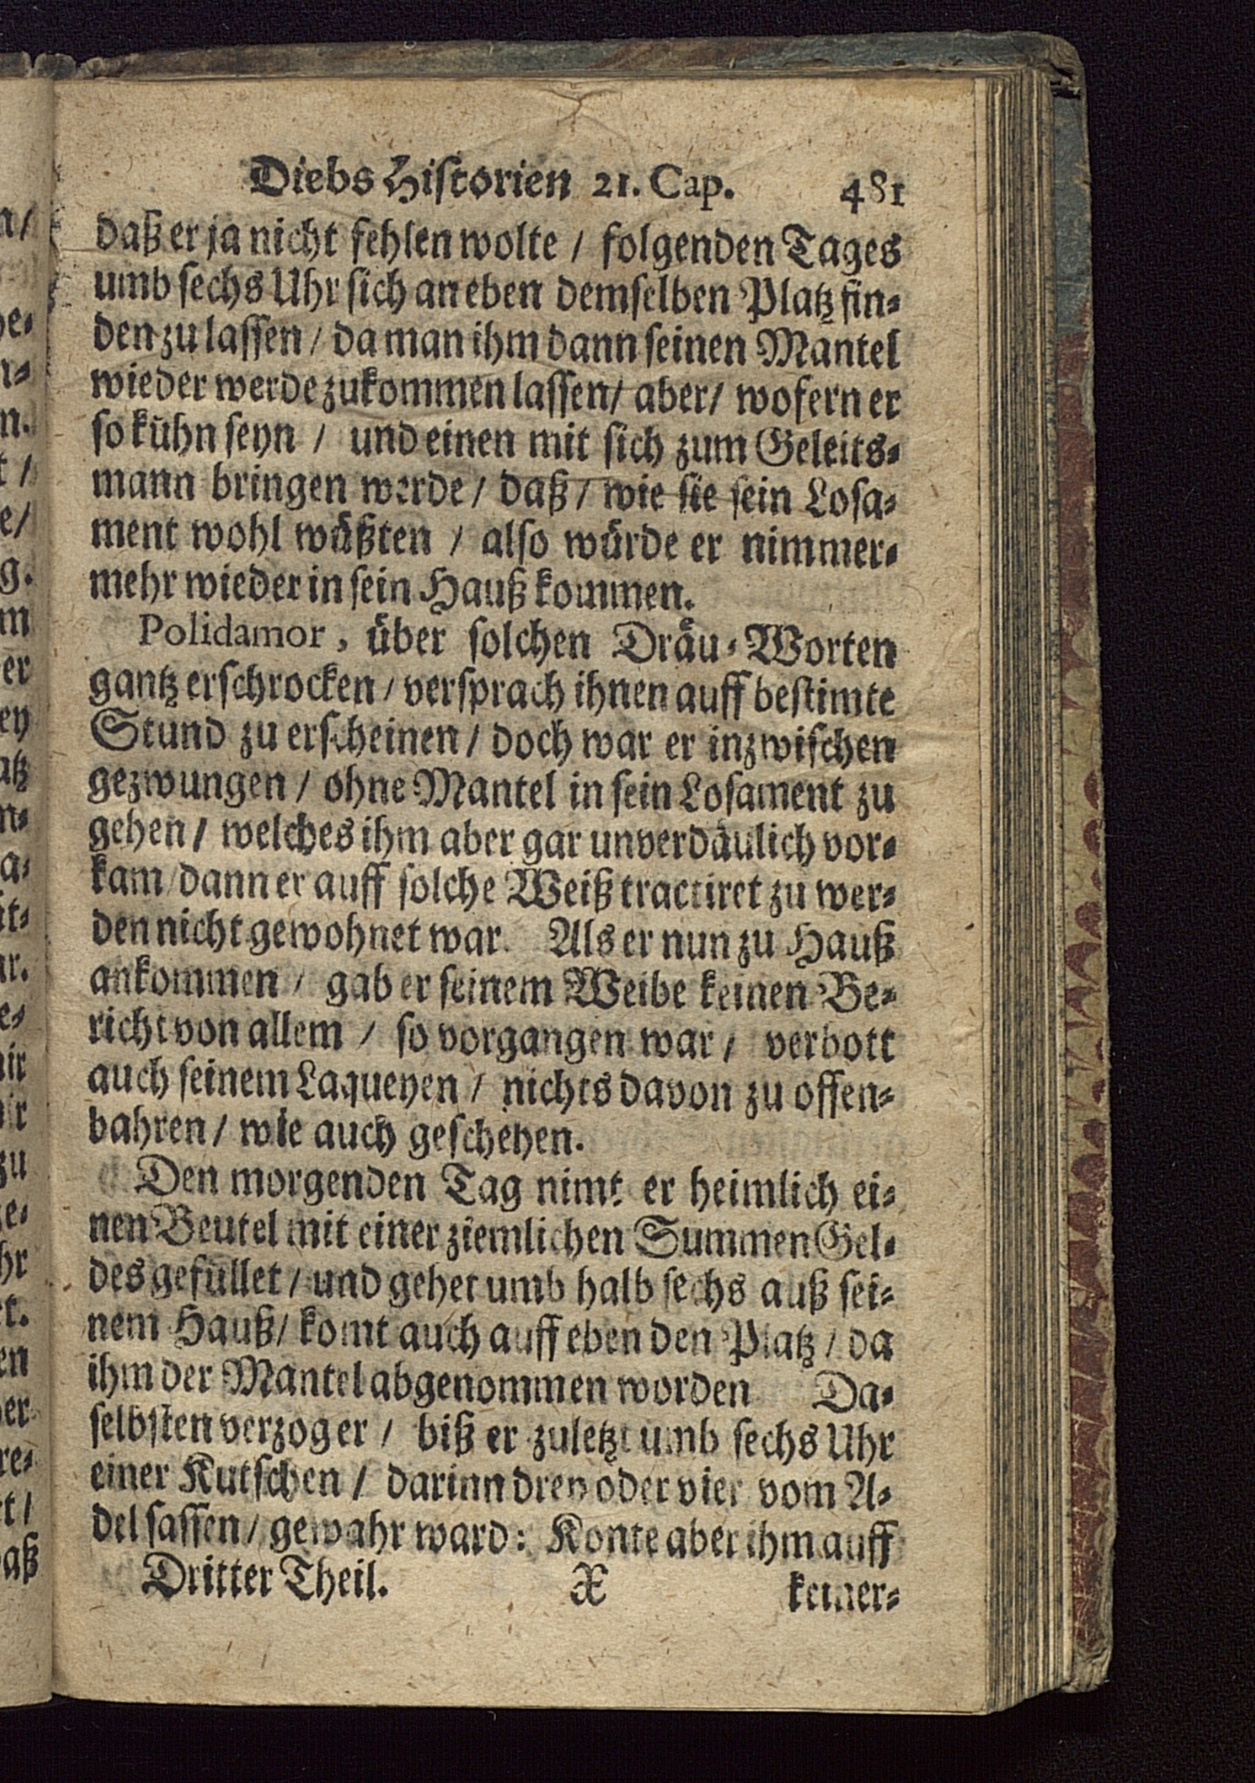 Diebs Historien 21. Cap. 481
daß er ja nicht fehlen wolte / folgenden Tages
umb sechs Uhr sich an eben demselben Platz fin-
den zu lassen / da man ihm dann seinen Mantel
wieder werde zukommen lassen / aber / wofern er
so kühn seyn / und einen mit sich zum Geleits-
mann bringen werde / daß / wie sie sein Losa-
ment wohl wüßten / also würde er nimmer-
mehr wieder in sein Hauß kommen.
Polidamor, über solchen Dräu-Worten
gantz erschrocken / versprach ihnen auff bestimte
Stund zu erscheinen / doch war er inzwischen
gezwungen / ohne Mantel in sein Losament zu
gehen / welches ihm aber gar unverdäulich vor-
kam / dann er auff solche Weiß tractiret zu wer-
den nicht gewohnet war. Als er nun zu Hauß
ankommen / gab er seinem Weibe keinen Be-
richt von allem / so vorgangen war / verbott
auch seinem Laqueyen / nichts davon zu offen-
bahren / wie auch geschehen.
Den morgenden Tag nimt er heimlich ei-
nen Beutel mit einer ziemlichen Summen Gel-
des gefüllet / und gehet umb halb sechs auß sei-
nem Hauß / komt auch auff eben den Platz / da
ihm der Mantel abgenommen worden Da-
selbsten verzog er / biß er zuletzt umb sechs Uhr
einer Kutschen / darinn drey oder vier vom A-
del sassen / gewahr ward: Konte aber ihm auff
Dritter Theil. X keiner-